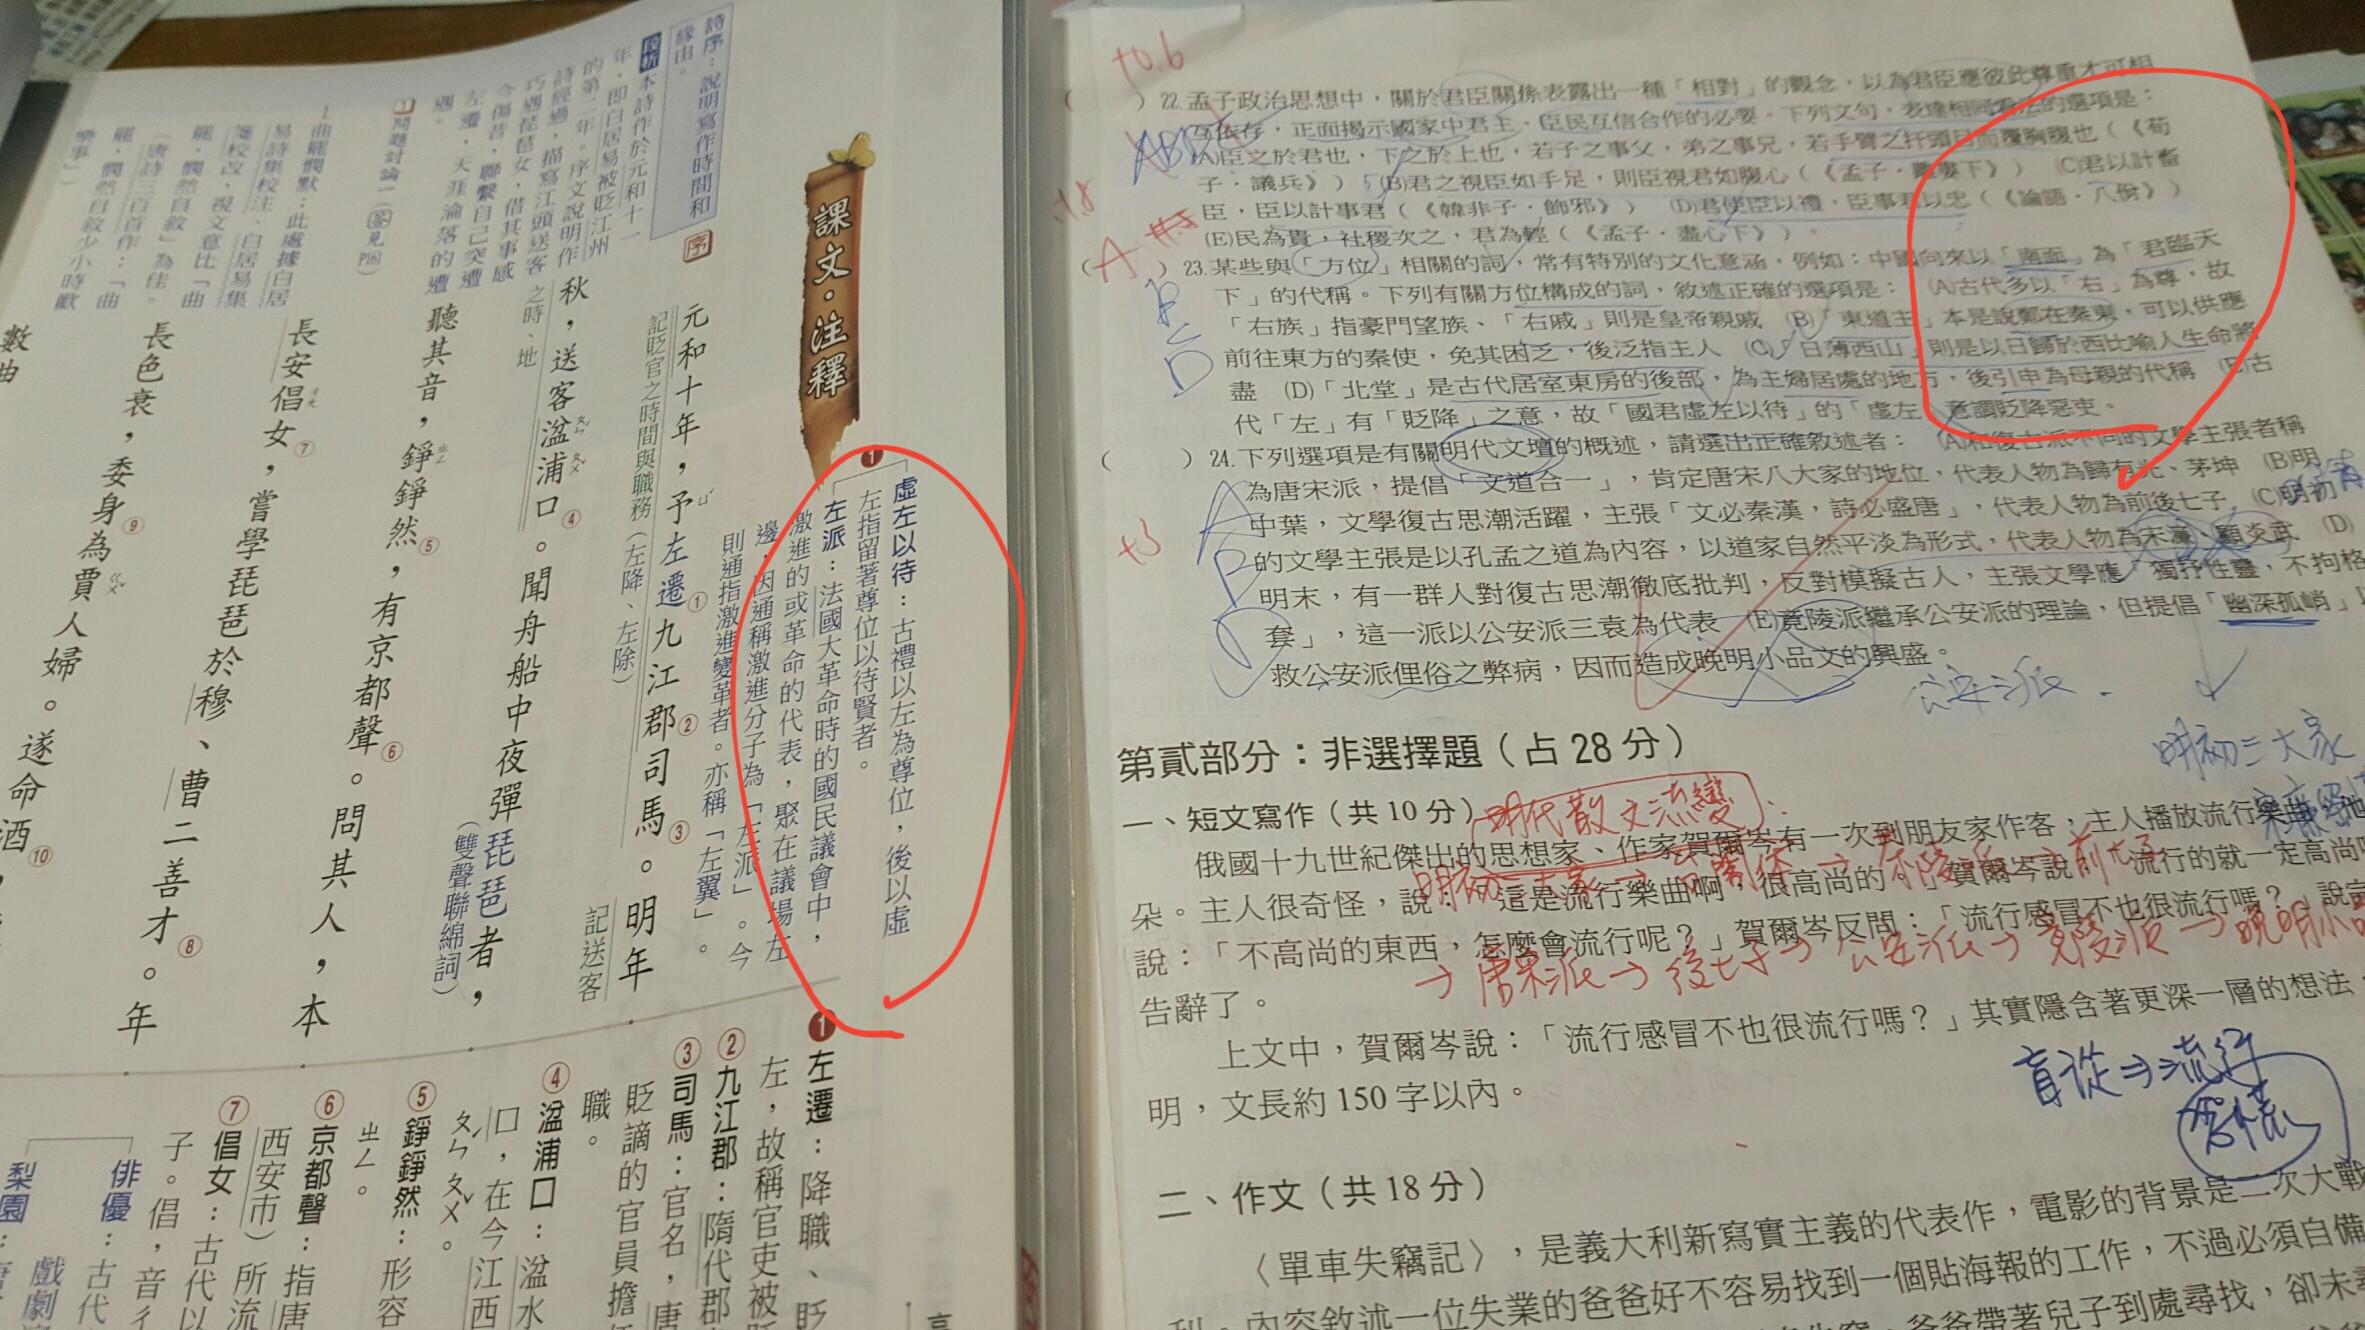 詩序：說明寫作時間和
緣由。
段析 本詩作於元和十一
年，即白居易被貶江州
的第二年。序文說明作
詩經過，描寫江頭送客
巧遇琵琶女，借其事感
今傷昔，聯繫自己突遭
左遷，天涯淪落的遭
遇。
問題討論一（答見P）
1.曲罷憫默：此處據白居
易詩集校注、白居易集
箋校改，視文意比「曲
罷，憫然自敘」為佳。
（唐詩三百首作：「曲
罷，憫然自敘少小時歡
樂事」）
課文．注釋
1
虛左以待：古禮以左為尊位，後以虛
左指留著尊位以待賢者。
左派：法國大革命時的國民議會中，
激進的或革命的代表，聚在議場左
邊，因通稱激進分子為「左派」。今
則通指激進變革者。亦稱「左翼」。
序
元和十年，予左遷①九江郡②司馬③。明年
ㄩˊ
記貶官之時間與職務（左降、左除）
記送客
秋，送客湓浦口④。聞舟船中夜彈琵琶者，
ㄆㄣˊ ㄆㄨˇ
之時、地
（雙聲聯綿詞）
聽其音，錚錚然⑤，有京都聲⑥。問其人，本
ㄓㄥ
長安倡女⑦，嘗學琵琶於穆、曹二善才⑧。年
長色衰，委身⑨為賈人婦。遂命酒⑩，
ㄍㄨˇ
數曲
1 左遷：降職、貶
左，故稱官吏被貶
② 九江郡：隋代郡
③ 司馬：官名，唐
貶謫的官員擔任
職。
④ 湓浦口：湓水
口，在今江西
ㄆㄣˊ ㄆㄨˇ。
⑤ 錚錚然：形容
ㄓㄥ。
⑥ 京都聲：指唐
西安市）所流
⑦ 倡女：古代以
子。倡，音ㄔ
俳優：古代
戲劇
梨園：唐
+0.6
（　　）22.孟子政治思想中，關於君臣關係表露出一種「相對」的觀念，以為君臣應彼此尊重才可相
互依存，正面揭示國家中君主、臣民互信合作的必要。下列文句，表達相同看法的選項是：
(A)臣之於君也，下之於上也，若子之事父，弟之事兄，若手臂之扞頭目而覆胸腹也（《荀
子．議兵》） (B)君之視臣如手足，則臣視君如腹心（《孟子．離婁下》） (C)君以計畜
臣，臣以計事君（《韓非子．飾邪》） (D)君使臣以禮，臣事君以忠（《論語．八佾》）
(E)民為貴，社稷次之，君為輕（《孟子．盡心下》）。
+1.8
（A　）23.某些與「方位」相關的詞，常有特別的文化意涵，例如：中國向來以「南面」為「君臨天
下」的代稱。下列有關方位構成的詞，敘述正確的選項是： (A)古代多以「右」為尊，故
「右族」指豪門望族、「右戚」則是皇帝親戚 (B)「東道主」本是說鄭在秦東，可以供應
前往東方的秦使，免其困乏，後泛指主人 (C)「日薄西山」則是以日歸於西比喻人生命將
盡 (D)「北堂」是古代居室東房的後部，為主婦居處的地方，後引申為母親的代稱 (E)古
代「左」有「貶降」之意，故「國君虛左以待」的「虛左」意謂貶降惡吏。
B
C
D
（　　）24.下列選項是有關明代文壇的概述，請選出正確敘述者： (A)和復古派不同的文學主張者稱
為唐宋派，提倡「文道合一」，肯定唐宋八大家的地位，代表人物為歸有光、茅坤 (B)明
中葉，文學復古思潮活躍，主張「文必秦漢，詩必盛唐」，代表人物為前後七子 (C)明初
的文學主張是以孔孟之道為內容，以道家自然平淡為形式，代表人物為宋濂、顧炎武 (D)
明末，有一群人對復古思潮徹底批判，反對模擬古人，主張文學應「獨抒性靈，不拘格
套」，這一派以公安派三袁為代表 (E)竟陵派繼承公安派的理論，但提倡「幽深孤峭」以
救公安派俚俗之弊病，因而造成晚明小品文的興盛。
+3
A
B
D
公安派．
明初三大家
第貳部分：非選擇題（占 28 分）
一、短文寫作（共 10 分）
明代散文流變：
俄國十九世紀傑出的思想家、作家賀爾岑有一次到朋友家作客，主人播放流行樂曲，他
朵。主人很奇怪，說：「這是流行樂曲啊，很高尚的。」賀爾岑說：「流行的就一定高尚嗎
說：「不高尚的東西，怎麼會流行呢？」賀爾岑反問：「流行感冒不也很流行嗎？」說完
告辭了。
→唐宋派→後七子→公安派→竟陵派→晚明小品
上文中，賀爾岑說：「流行感冒不也很流行嗎？」其實隱含著更深一層的想法，
明，文長約 150 字以內。
盲從⇒流行
二、作文（共 18 分）
〈單車失竊記〉，是義大利新寫實主義的代表作，電影的背景是二次大戰
內容敘述一位失業的爸爸好不容易找到一個貼海報的工作，不過必須自備
爸爸帶著兒子到處尋找，卻未尋